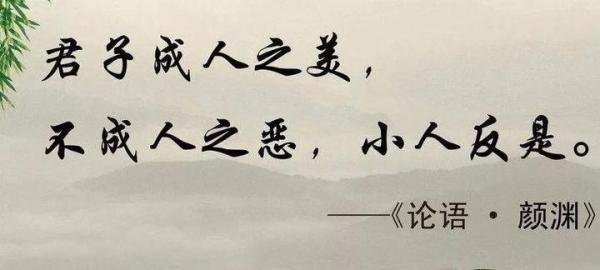 君子成人之美，
不成人之恶，小人反是。
——《论语·颜渊》